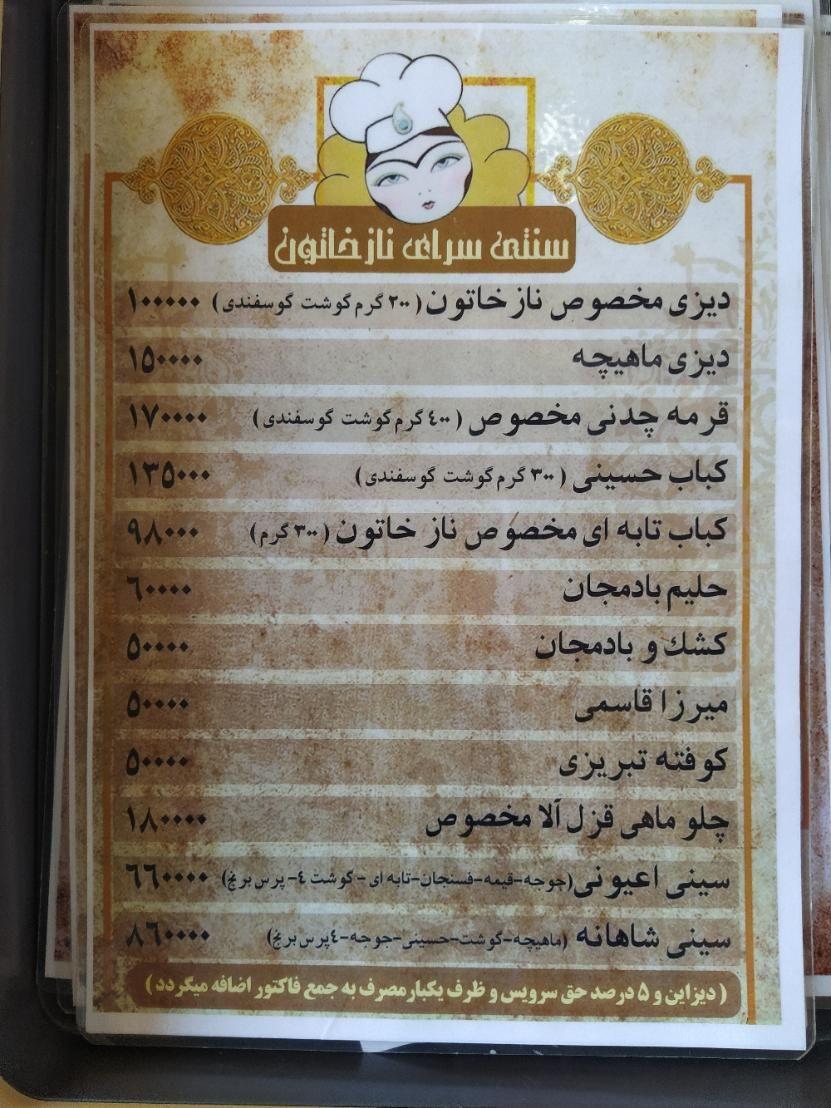 سنتی سرای نازخاتون
دیزی مخصوص نازخاتون (۲۰۰ گرم گوشت گوسفندی) ۱۰۰۰۰۰
دیزی ماهیچه ۱۵۰۰۰۰
قرمه چدنی مخصوص (۴۰۰ گرم گوشت گوسفندی) ۱۷۰۰۰۰
کباب حسینی (۳۰۰ گرم گوشت گوسفندی) ۱۳۵۰۰۰
کباب تابه ای مخصوص ناز خاتون (۳۰۰ گرم) ۹۸۰۰۰
حلیم بادمجان ۶۰۰۰۰
کشك و بادمجان ۵۰۰۰۰
میرزا قاسمی ۵۰۰۰۰
کوفته تبریزی ۵۰۰۰۰
چلو ماهی قزل آلا مخصوص ۱۸۰۰۰۰
سینی اعیونی (جوجه-قیمه-فسنجان-تابه ای-گوشت ۴- پرس برنج) ۶۶۰۰۰۰
سینی شاهانه (ماهیچه-گوشت-حسینی-جوجه-۴پرس برنج) ۸۶۰۰۰۰
(دیزاین و ۵ درصد حق سرویس و ظرف یکبارمصرف به جمع فاکتور اضافه میگردد)